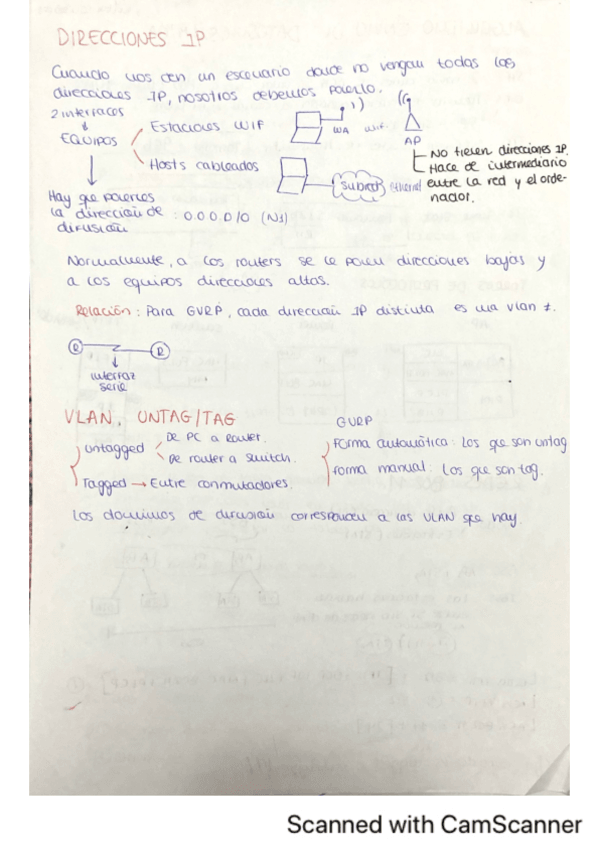 DIRECCIONES IP
Cuando nos den un escenario donde no vengan todas las
direcciones IP, nosotros debemos ponerlo.
2 interfaces
EQUIPOS
Estaciones WIF
WA Wifi
AP
Hosts cableados
Subred ethernet
No tienen direcciones IP.
Hace de intermediario
entre la red y el orde-
nador.
Hay que ponerles
la dirección de : 0.0.0.0/0 (N1)
difusión
Normalmente, a los routers se le ponen direcciones bajas y
a los equipos direcciones altas.
Relación: Para GVRP, cada dirección IP distinta es una vlan ≠.
R R
interfaz
serie
VLAN. UNTAG/TAG
Untagged
De PC a Router.
De router a switch.
Tagged → Entre conmutadores.
GVRP
Forma automática: Los que son untag
Forma manual: Los que son tag.
Los dominios de difusión corresponden a las VLAN que hay.
Scanned with CamScanner